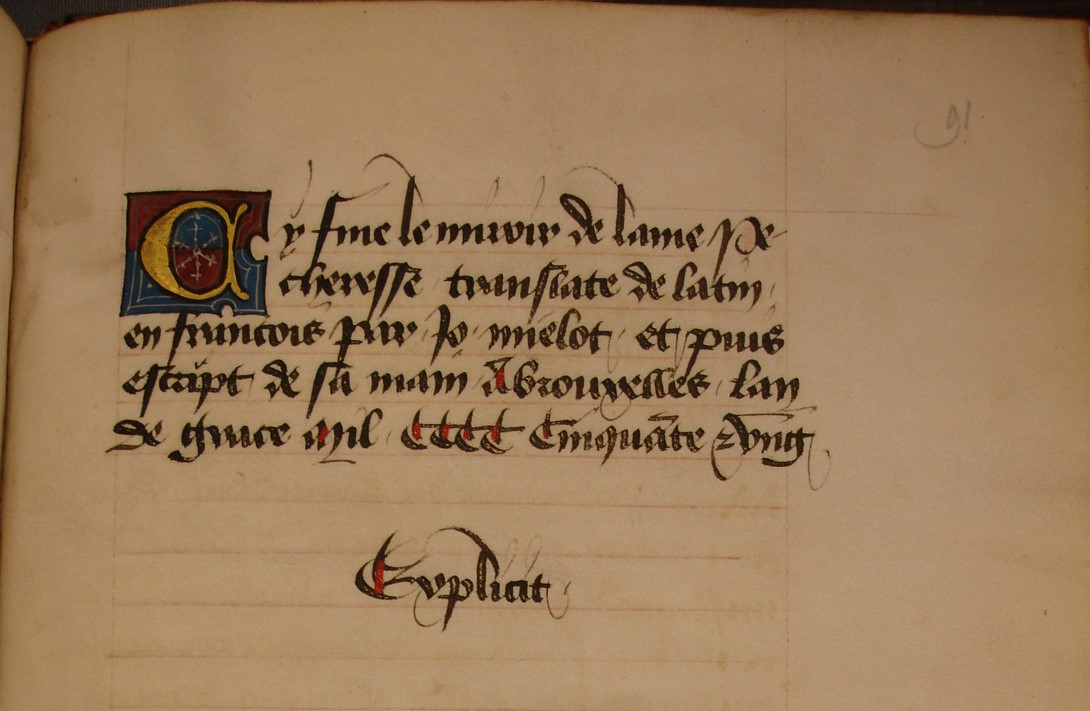 91
Cy fine le miroir de lame pe-
cheresse translate de latin
en francois par Jo mielot et puis
escript de sa main a brouxelles lan
de grace mil CCCC Cinquāte ⁊ vng
Explicit